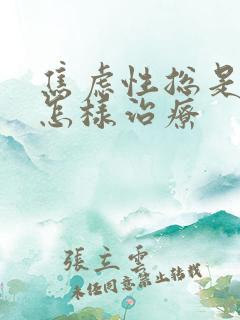 焦虑性总是
怎样治疗
張立雲
未经同意禁止转载